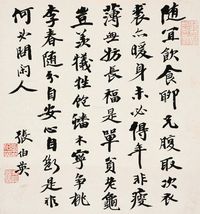 隨宜飲食聊充腹取次衣
裘亦暖身未必得年非瘦
薄無妨長福是單貧老龜
豈羨犧牲飽蟠木寧爭桃
李春隨分自安心自斷是非
何必問閑人
張伯英